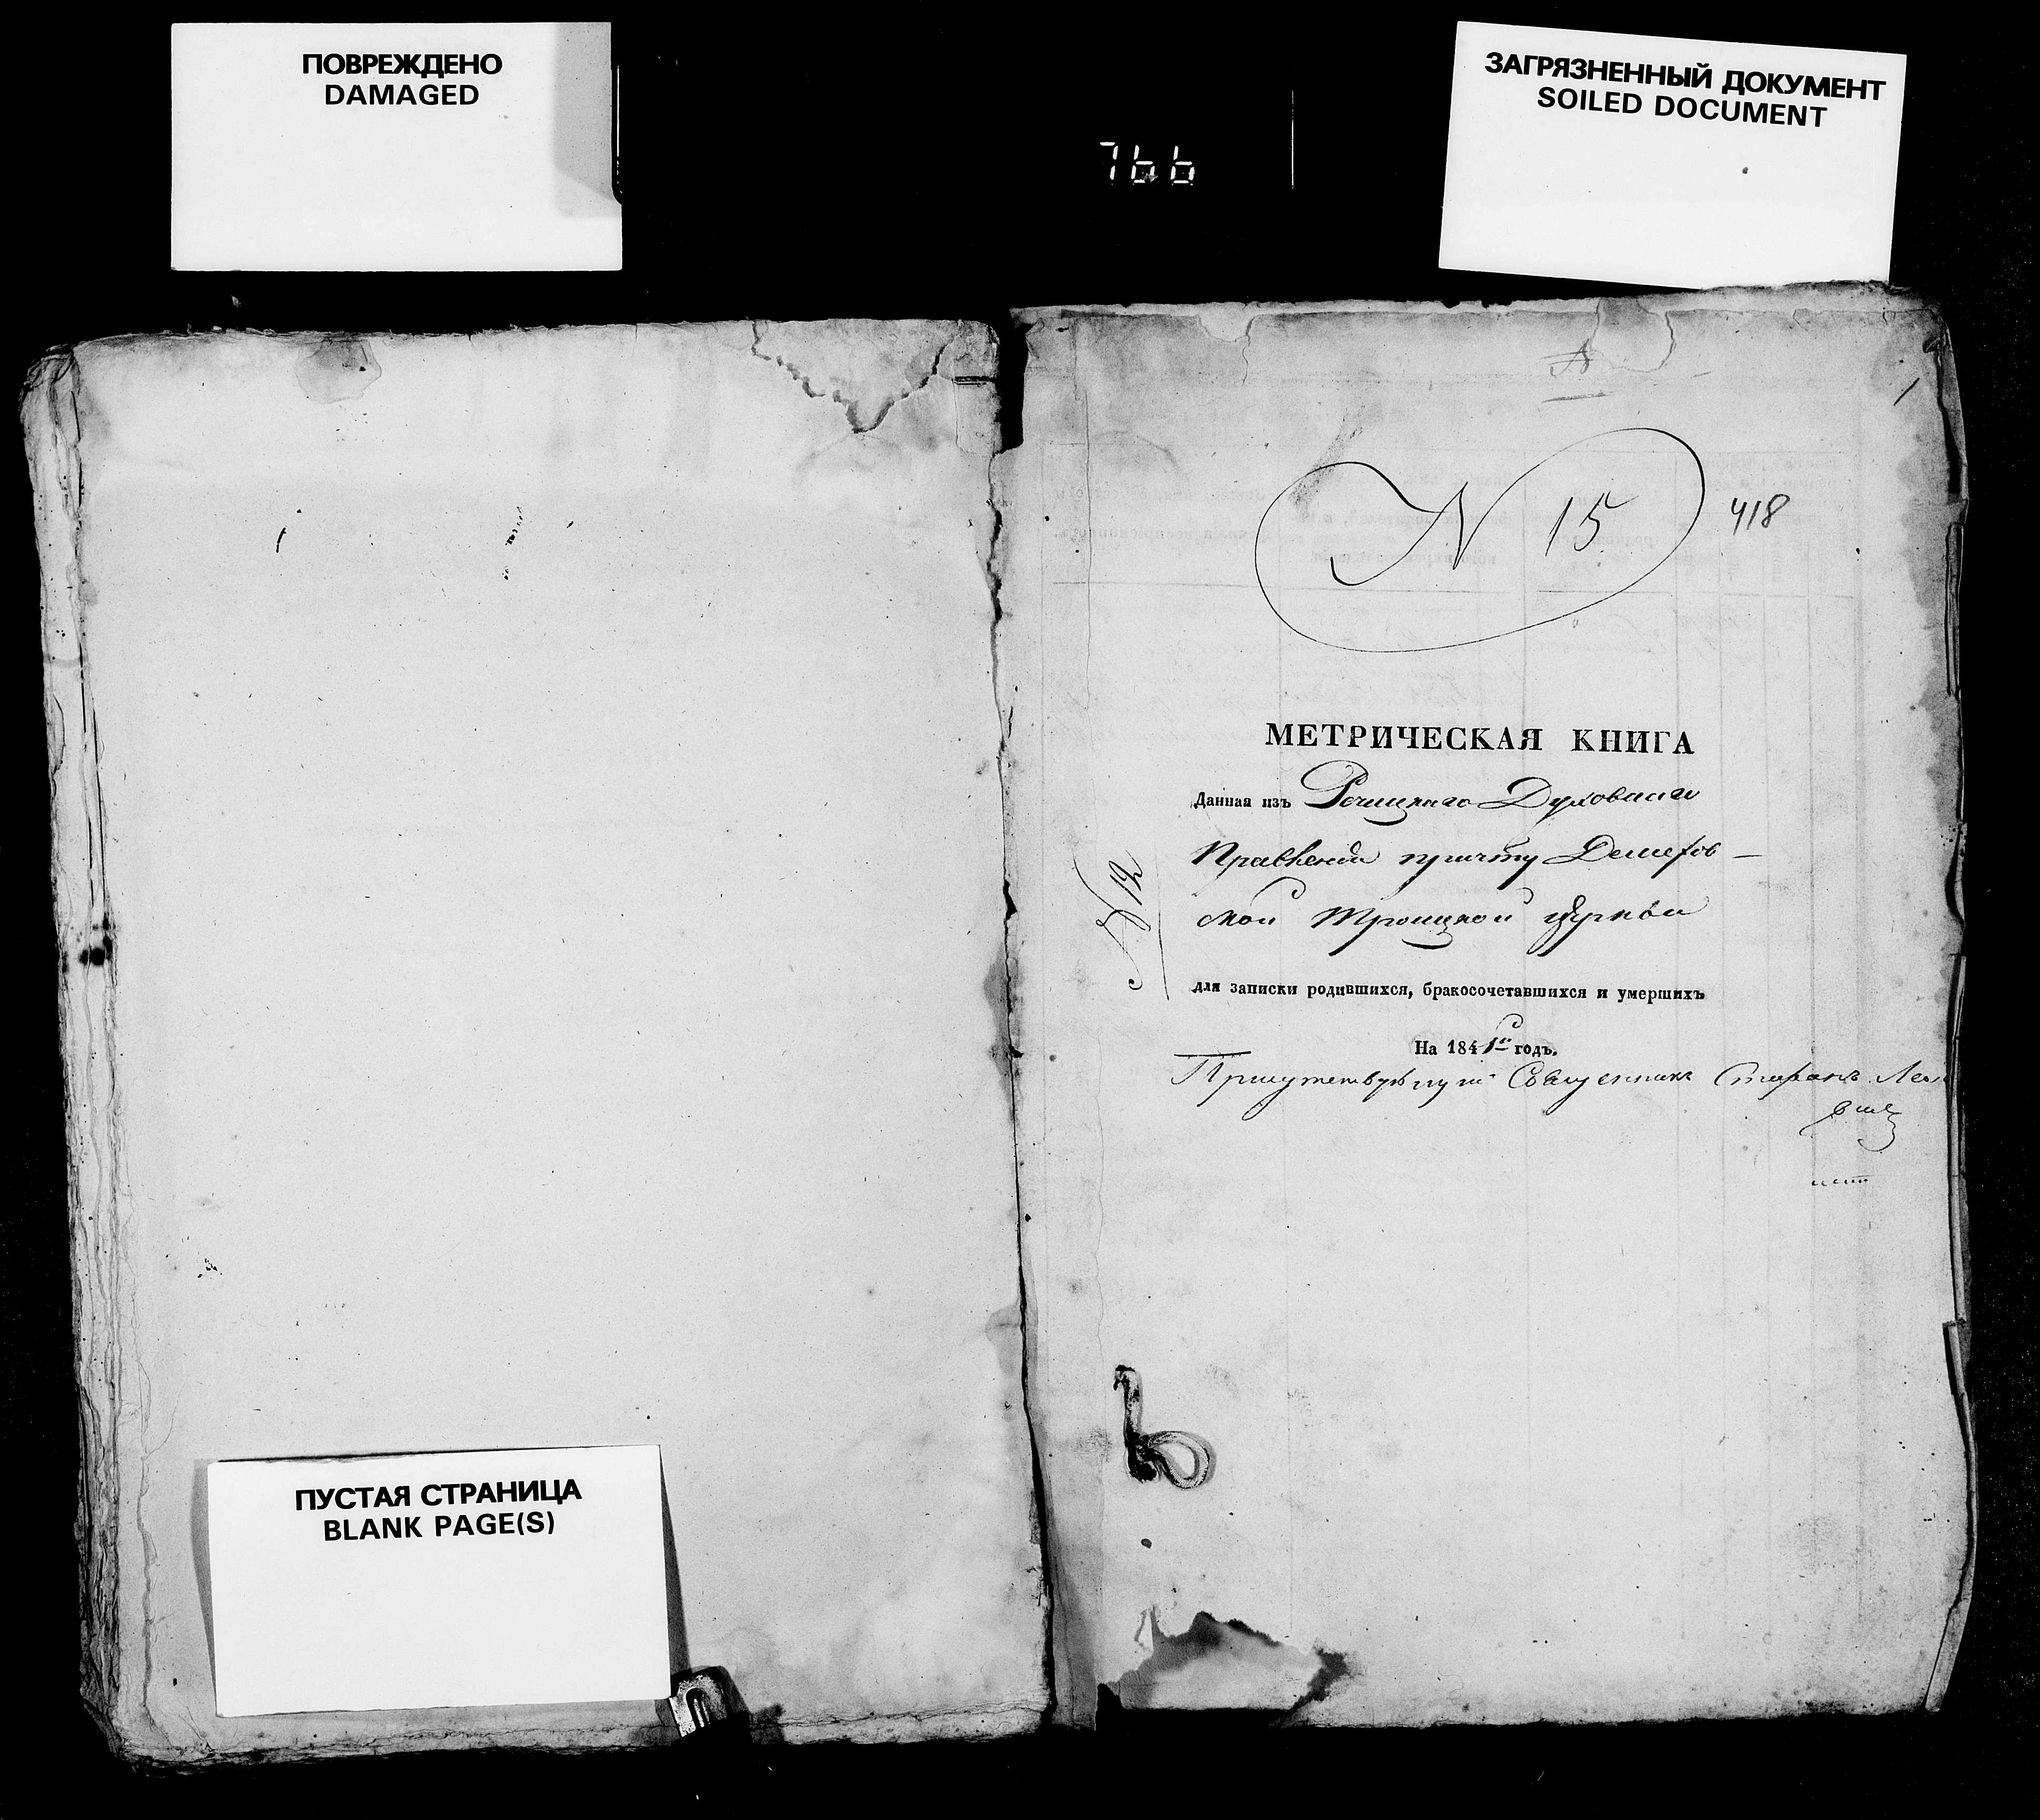 ПОВРЕЖДЕНО
DAMAGED
766
ЗАГРЯЗНЕННЫЙ ДОКУМЕНТ
SOILED DOCUMENT
1
N 15
418
МЕТРИЧЕСКАЯ КНИГА
Данная изъ Речицкаго Духовнаго
Правленія причту
ской Троицкой Церкви
для записки родившихся, бракосочетавшихся и умершихъ
На 1841й годъ.
Присутствующій Священникъ
ПУСТАЯ СТРАНИЦА
BLANK PAGE(S)